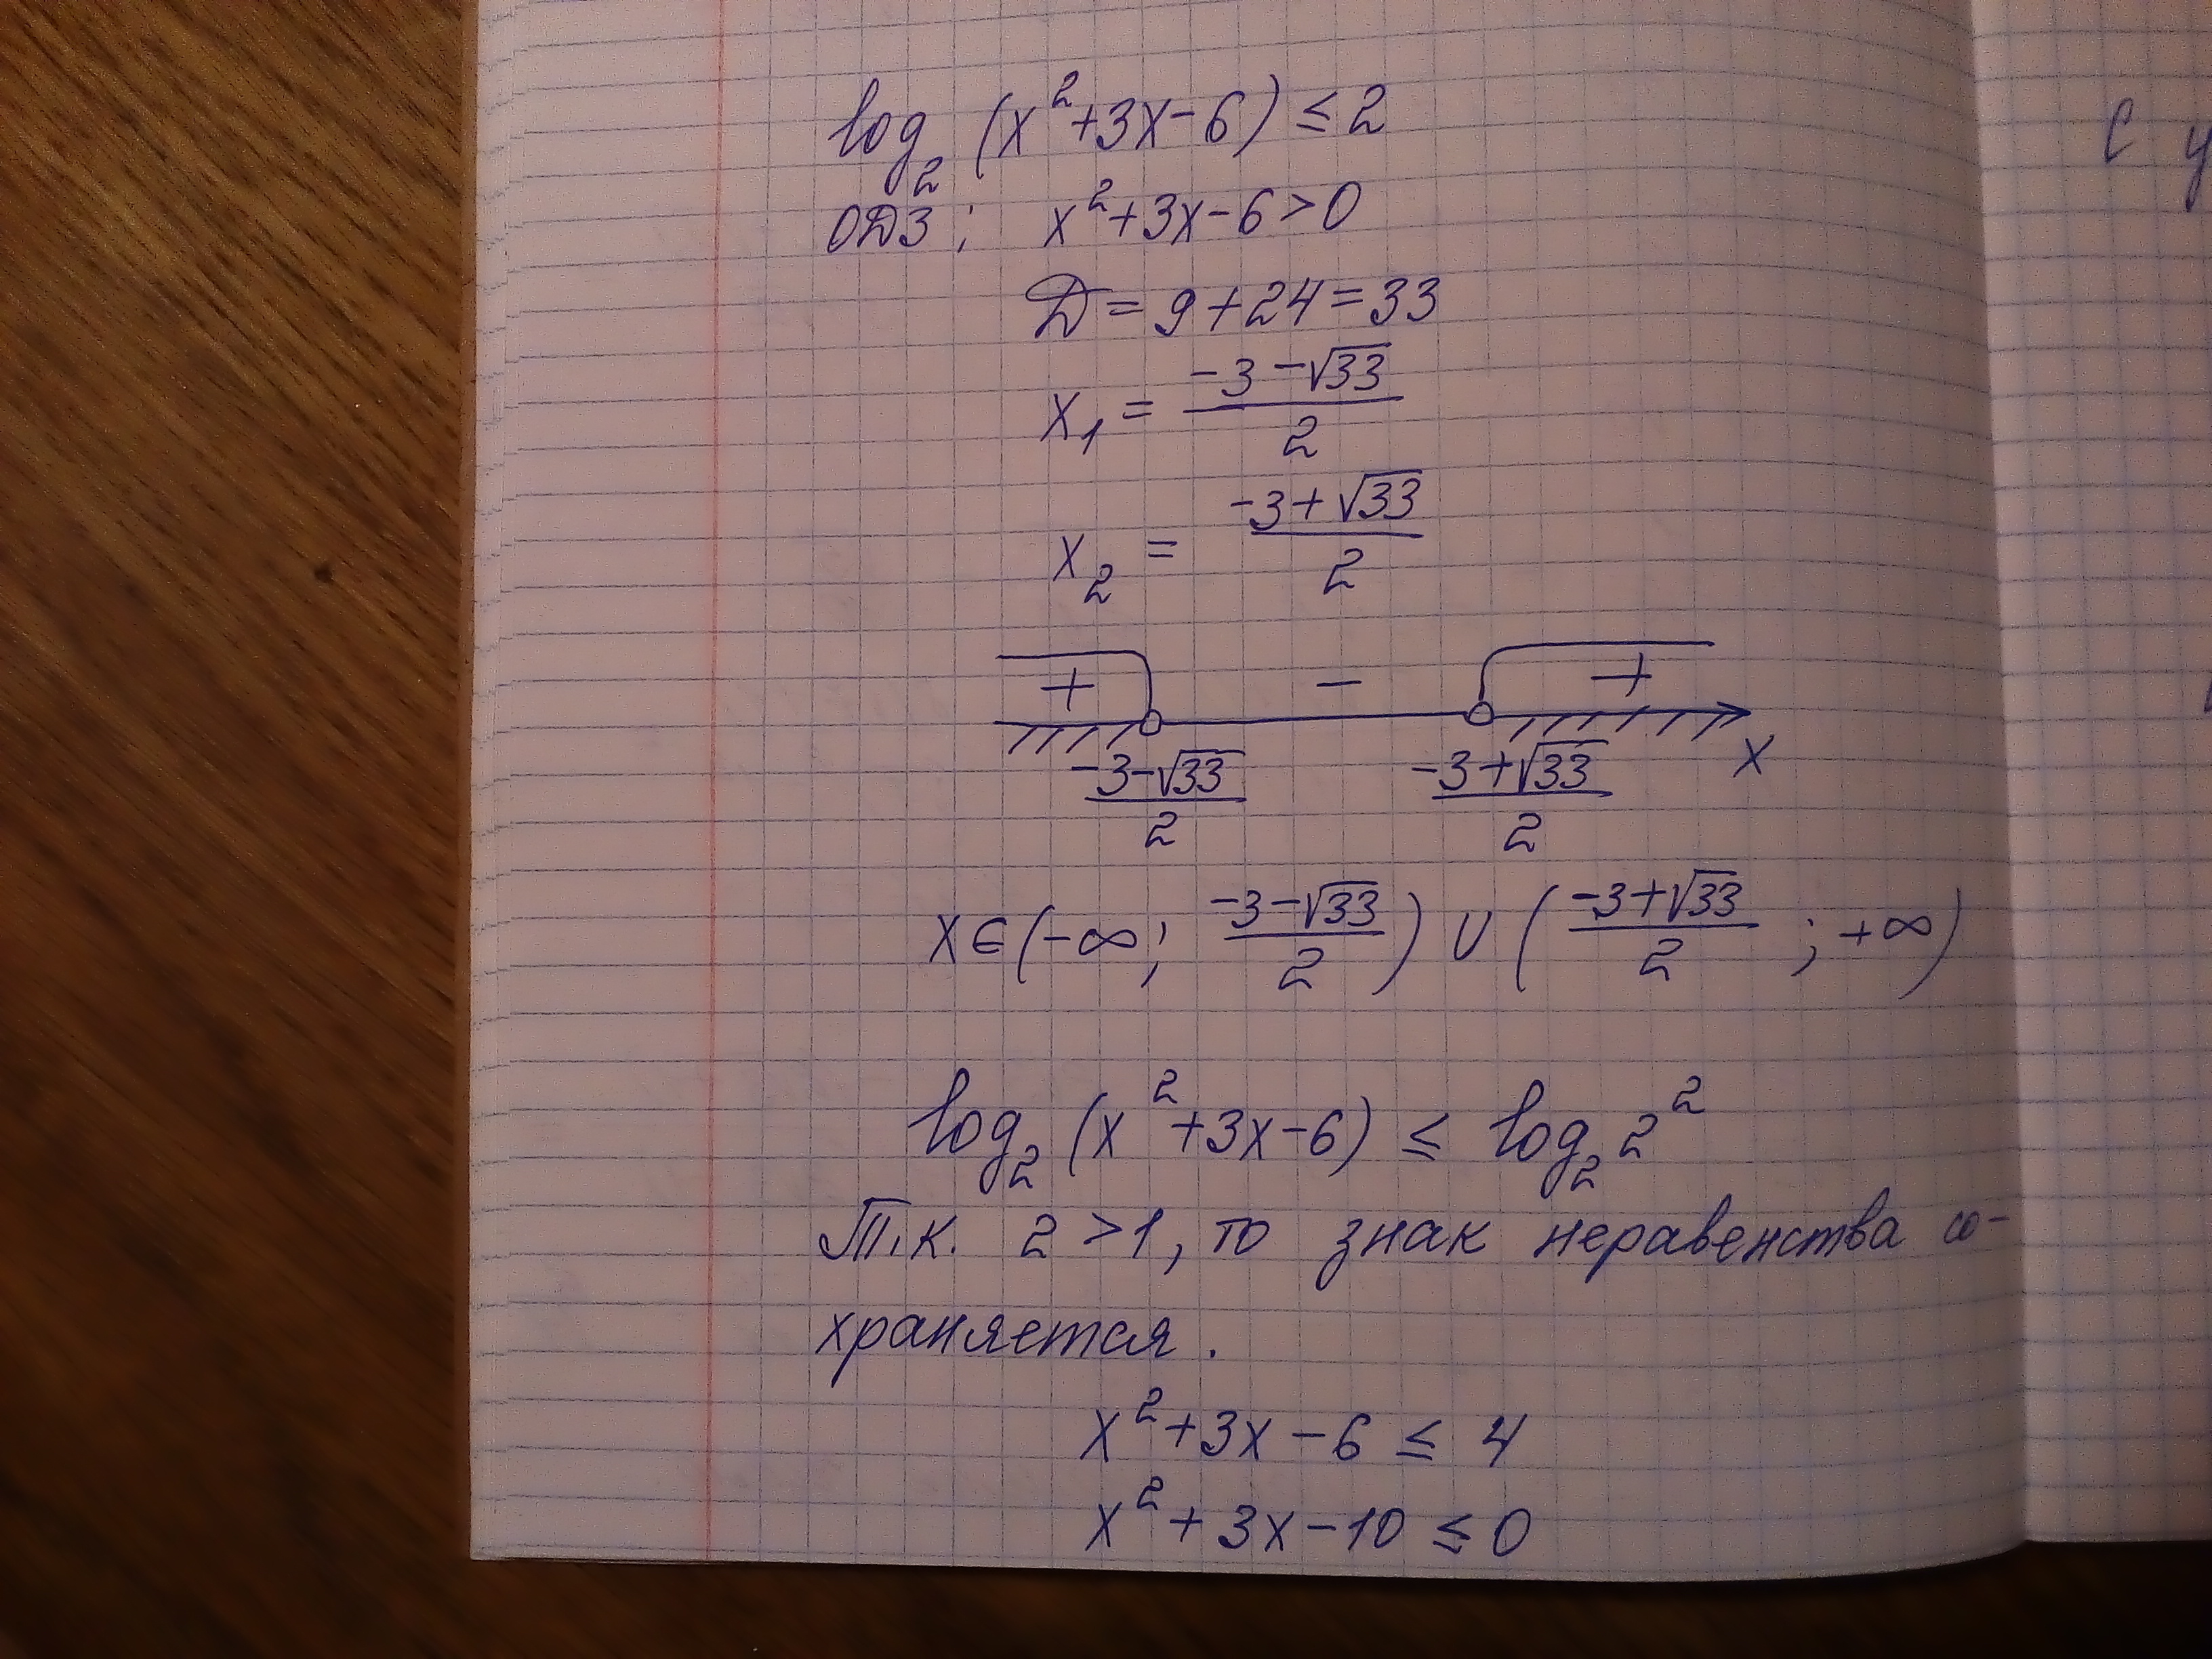 log₂ (x²+3x-6) ≤ 2
ОДЗ: x²+3x-6>0
Д = 9+24=33
x₁ = (-3-√33)/2
x₂ = (-3+√33)/2
+ - +
(-3-√33)/2 (-3+√33)/2 x
x∈(-∞; (-3-√33)/2) ∪ ((-3+√33)/2; +∞)
log₂ (x²+3x-6) ≤ log₂ 2²
Т.к. 2 >1, то знак неравенства со-
храняется.
x²+3x-6 ≤ 4
x²+3x-10 ≤ 0
С у